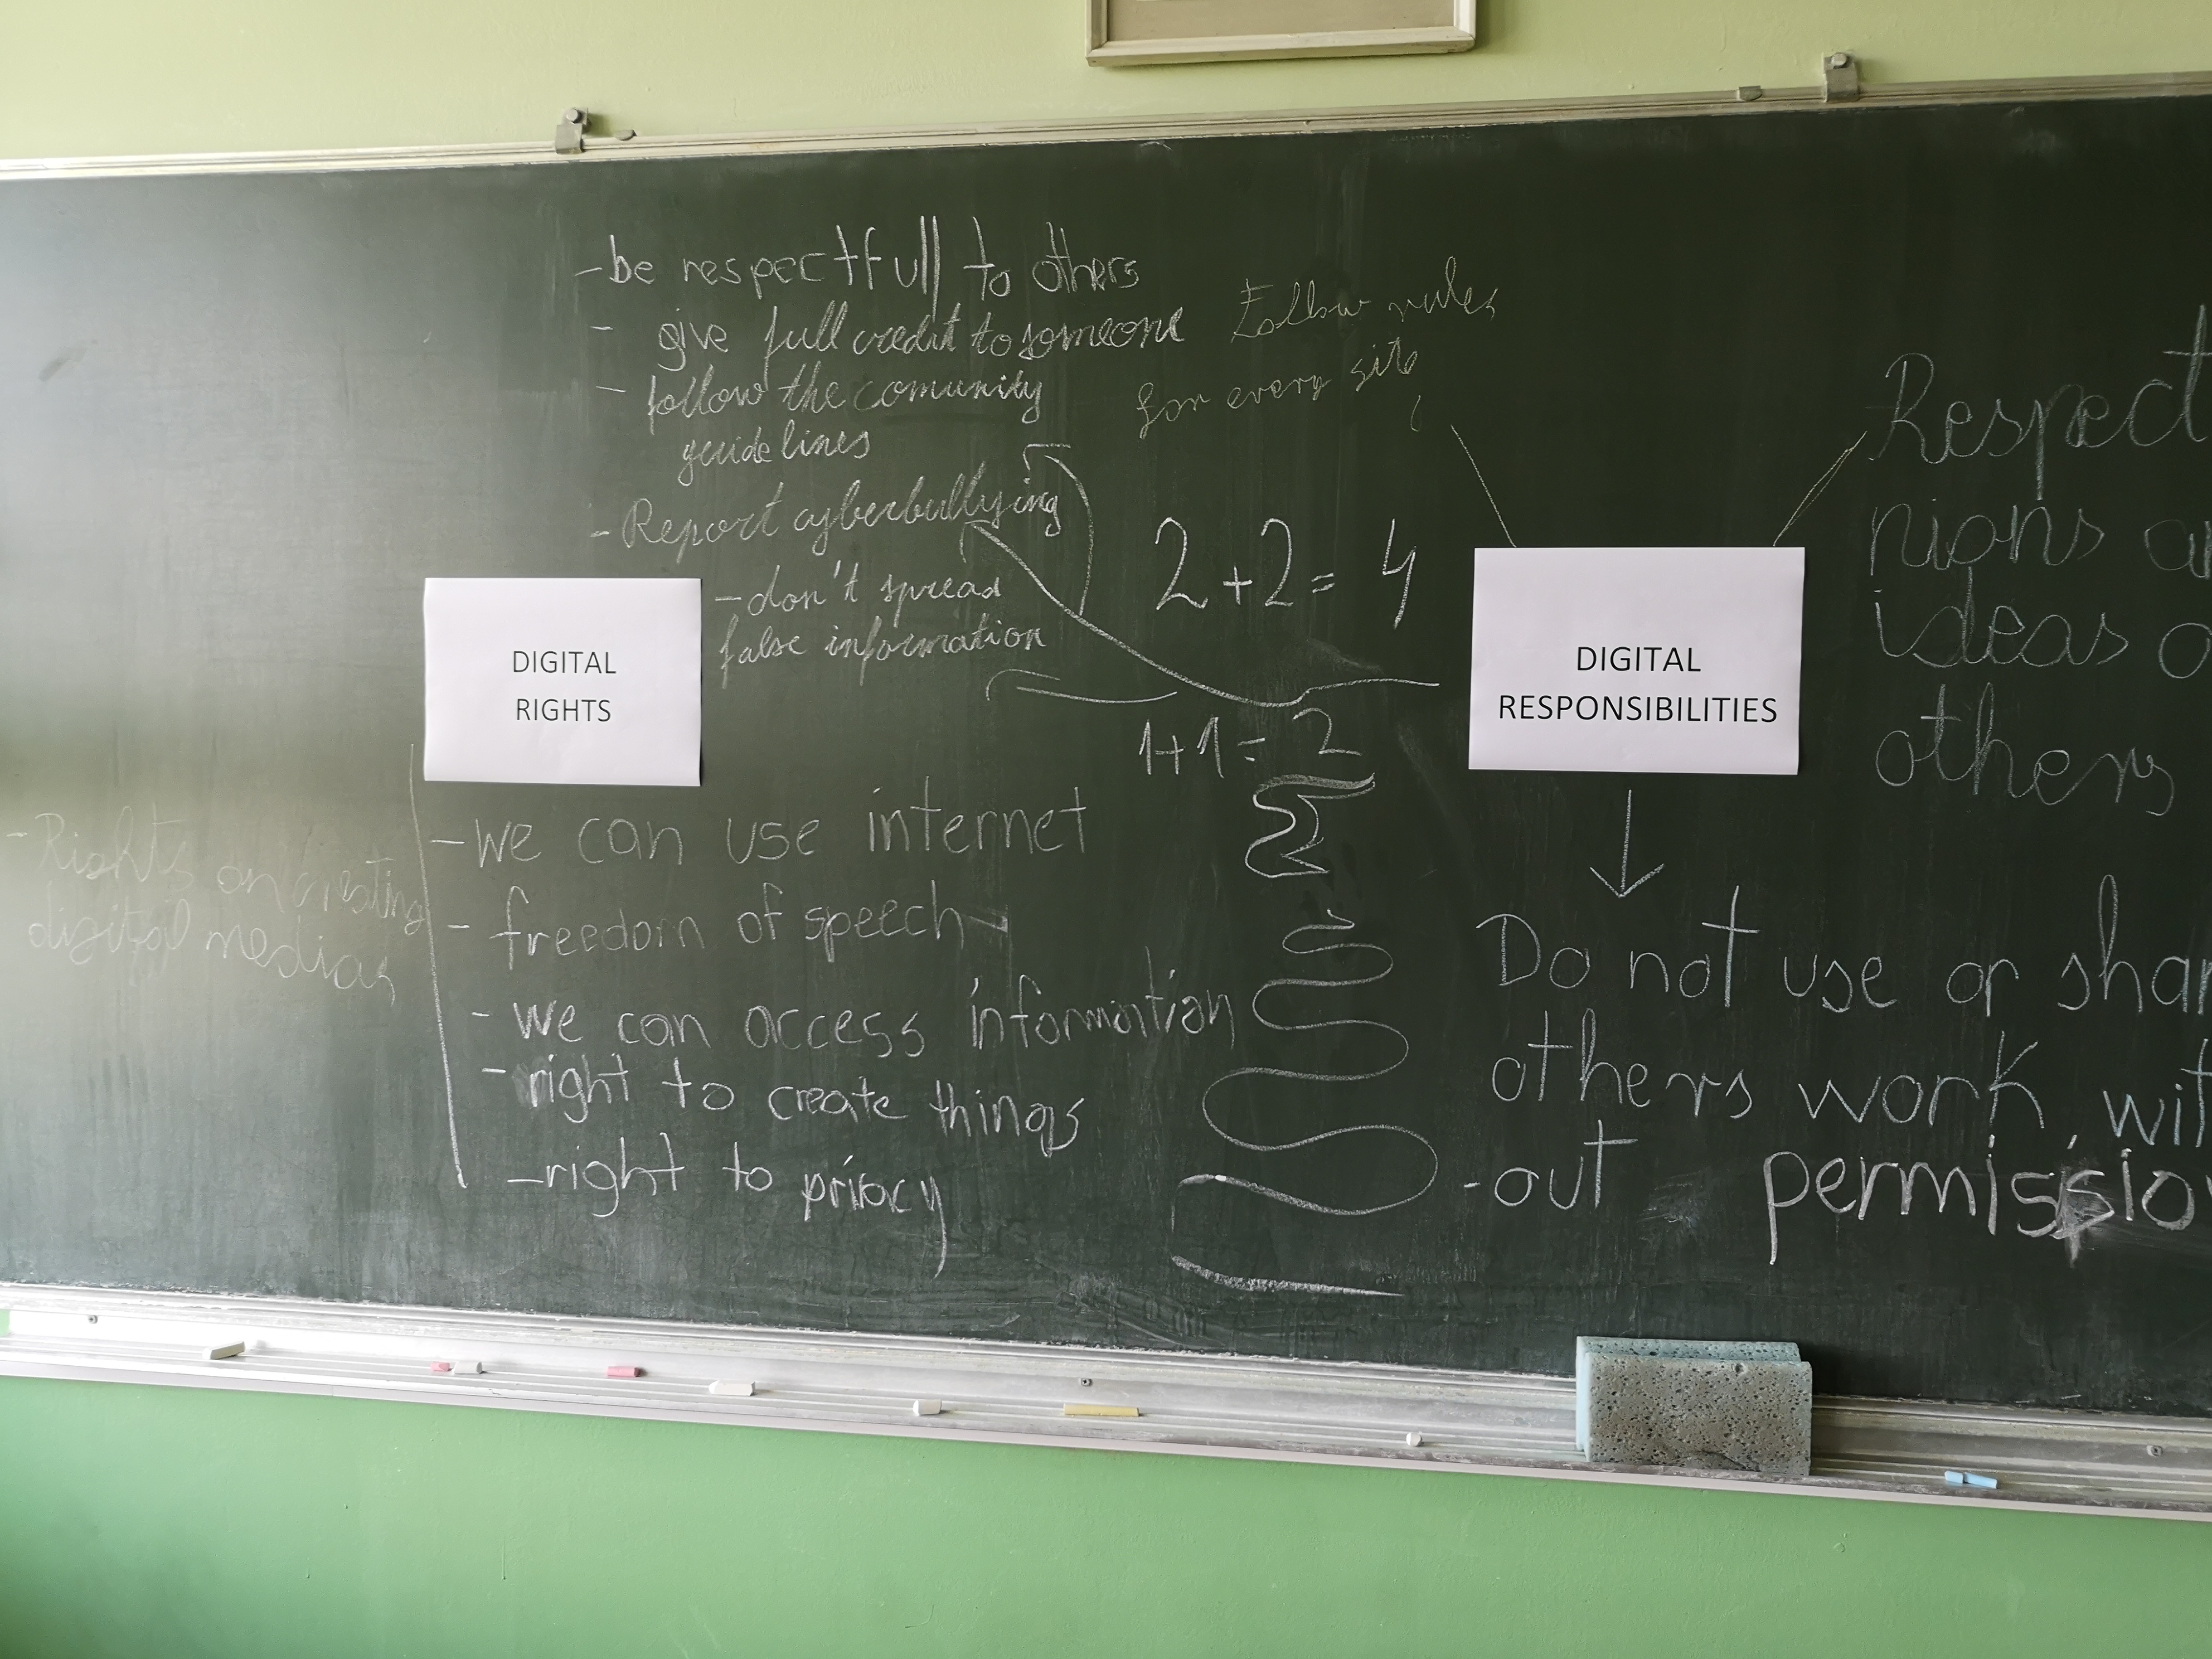 - be respectfull to others
- give full credit to someone
- follow the comunity
guidelines
- Report cyberbullying
- don't spread
false information
Follow rules
for every site
2+2= 4
1+1= 2
DIGITAL
RIGHTS
- Rights on creating
digital medias
- we can use internet
- freedom of speech
- we can access information
- right to create things
- right to privacy
DIGITAL
RESPONSIBILITIES
Respect
nions
ideas
others
Do not use or shar
others work, wit
-out permissio